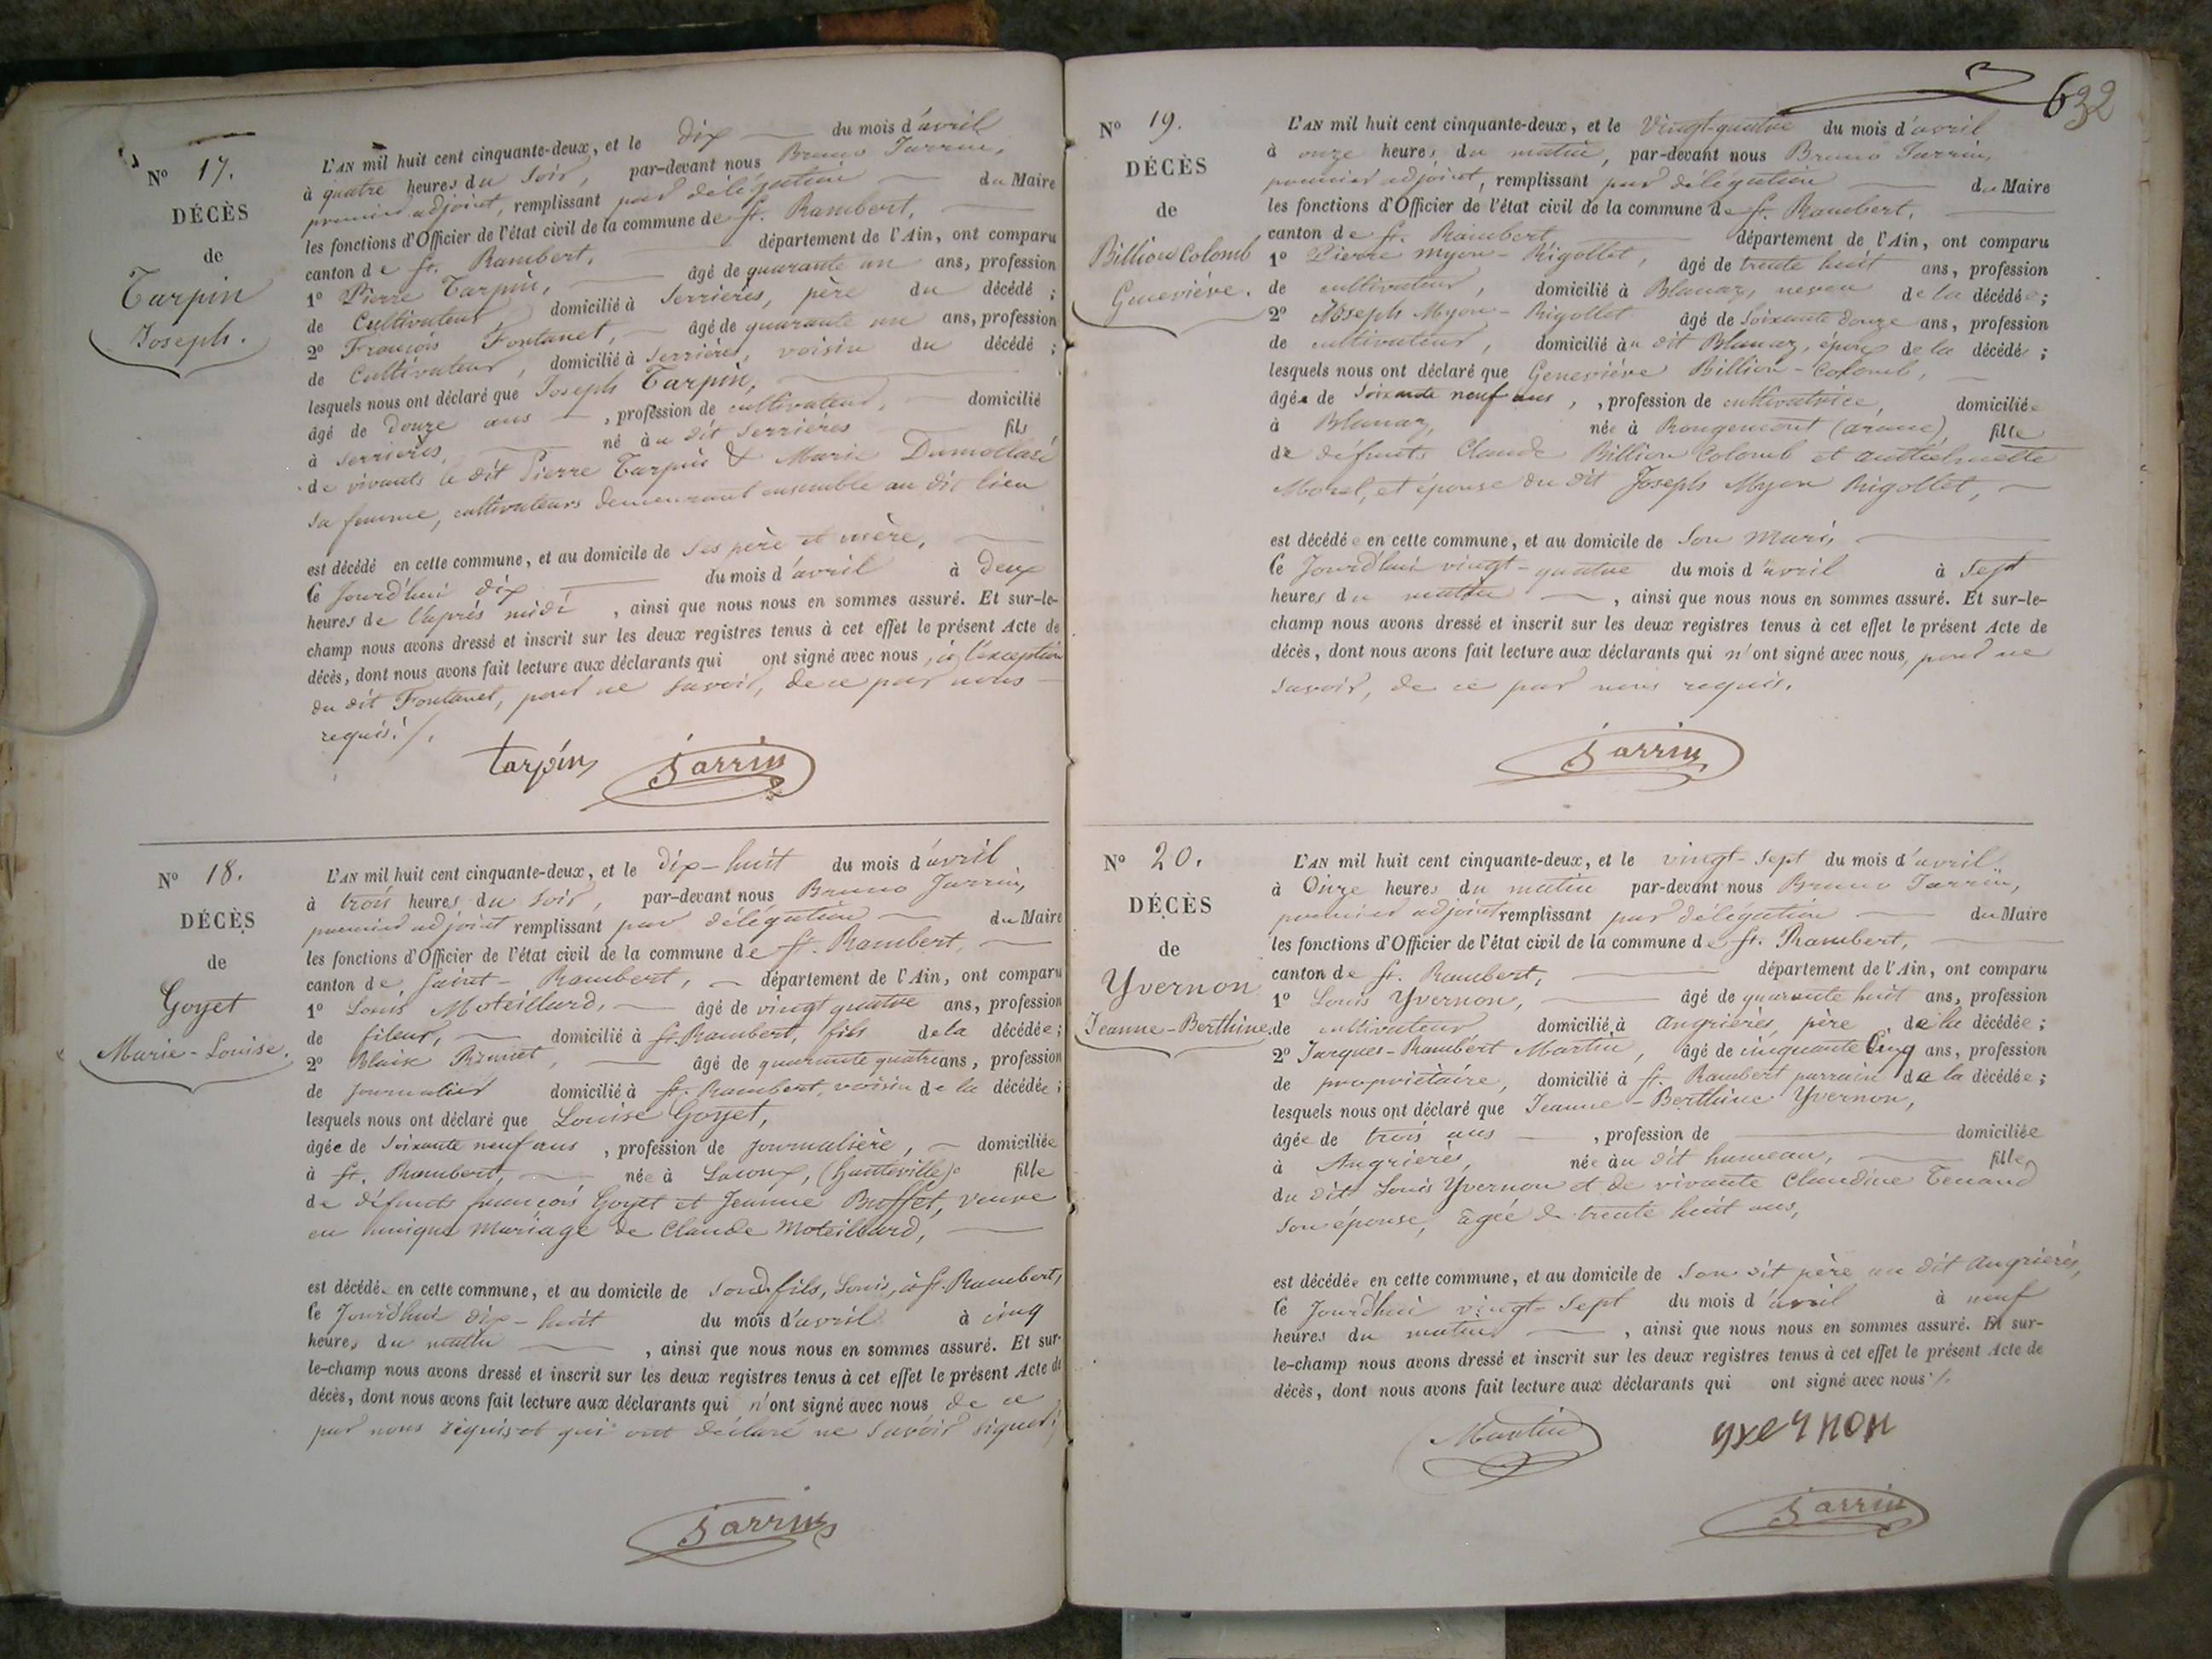 N° 17.
DÉCÈS
de
Tarpin
Joseph.
L'AN mil huit cent cinquante-deux, et le dix du mois d'avril
à quatre heures du soir, par-devant nous Bruno Jarrin,
premier adjoint, remplissant par délégation du Maire
les fonctions d'Officier de l'état civil de la commune de St. Rambert,
canton de St. Rambert, département de l'Ain, ont comparu
1° Pierre Tarpin, âgé de quarante un ans, profession
de Cultivateur domicilié à Serrières, père du décédé ;
2° François Fontanet, âgé de quarante un ans, profession
de Cultivateur, domicilié à Serrières, voisin du décédé ;
lesquels nous ont déclaré que Joseph Tarpin,
âgé de douze ans, profession de cultivateur, domicilié
à Serrières, né au dit Serrières fils
de vivants le dit Pierre Tarpin & Marie Dumollard
sa femme, cultivateurs demeurant ensemble au dit lieu
est décédé en cette commune, et au domicile de ses père et mère,
le jourd'hui dix du mois d'avril à deux
heures de l'après midi, ainsi que nous nous en sommes assuré. Et sur-le-
champ nous avons dressé et inscrit sur les deux registres tenus à cet effet le présent Acte de
décès, dont nous avons fait lecture aux déclarants qui ont signé avec nous, à l'exception
du dit Fontanet, pour ne savoir, de ce par nous
requis. /.
tarpin Jarrin
N° 18.
DÉCÈS
de
Goyet
Marie-Louise.
L'AN mil huit cent cinquante-deux, et le dix-huit du mois d'avril
à trois heures du soir, par-devant nous Bruno Jarrin,
premier adjoint remplissant par délégation du Maire
les fonctions d'Officier de l'état civil de la commune de St. Rambert,
canton de Saint-Rambert, département de l'Ain, ont comparu
1° Louis Moteillard, âgé de vingt quatre ans, profession
de fileur, domicilié à St. Rambert, fils de la décédée ;
2° Blaise âgé de quarante quatre ans, profession
de journalier domicilié à St. Rambert, voisin de la décédée ;
lesquels nous ont déclaré que Louise Goyet,
âgée de soixante neuf ans, profession de journalière, domiciliée
à St. Rambert, née à Lacoux, (hauteville) fille
de défunts françois Goyet et Jeanne Buffet, veuve
en unique mariage de Claude Moteillard,
est décédée en cette commune, et au domicile de son fils, Louis, à St. Rambert,
le jourd'hui dix-huit du mois d'avril à cinq
heures du matin, ainsi que nous nous en sommes assuré. Et sur-
le-champ nous avons dressé et inscrit sur les deux registres tenus à cet effet le présent Acte de
décès, dont nous avons fait lecture aux déclarants qui n'ont signé avec nous de ce
par nous requis et qui ont déclaré ne savoir signer ;
Jarrin
632
N° 19.
DÉCÈS
de
Billion Colomb
Geneviève.
L'AN mil huit cent cinquante-deux, et le vingt-quatre du mois d'avril
à onze heures du matin, par-devant nous Bruno Jarrin,
premier adjoint, remplissant par délégation du Maire
les fonctions d'Officier de l'état civil de la commune de St. Rambert,
canton de St. Rambert département de l'Ain, ont comparu
1° Pierre Myon-Rigollet, âgé de trente huit ans, profession
de cultivateur, domicilié à Blanaz, neveu de la décédée ;
2° Joseph Myon-Rigollet âgé de soixante douze ans, profession
de cultivateur, domicilié au dit Blanaz, époux de la décédée ;
lesquels nous ont déclaré que Geneviève Billion-Colomb,
âgée de soixante neuf ans, profession de cultivatrice, domiciliée
à Blanaz, née à Rougemont (aranc) fille
de défunts Claude Billion Colomb et anthelmette
Morel, et épouse du dit Joseph Myon Rigollet,
est décédée en cette commune, et au domicile de son mari,
le jourd'hui vingt-quatre du mois d'avril à sept
heures du matin, ainsi que nous nous en sommes assuré. Et sur-le-
champ nous avons dressé et inscrit sur les deux registres tenus à cet effet le présent Acte de
décès, dont nous avons fait lecture aux déclarants qui n'ont signé avec nous, pour ne
savoir, de ce par nous requis.
Jarrin
N° 20.
DÉCÈS
de
Yvernon
Jeanne-Berthine.
L'AN mil huit cent cinquante-deux, et le vingt-sept du mois d'avril
à Onze heures du matin par-devant nous Bruno Jarrin,
premier adjoint remplissant par délégation du Maire
les fonctions d'Officier de l'état civil de la commune de St. Rambert,
canton de St. Rambert, département de l'Ain, ont comparu
1° Louis Yvernon, âgé de quarante huit ans, profession
de cultivateur domicilié à Angrières, père de la décédée ;
2° Jacques-Rambert Martin, âgé de cinquante cinq ans, profession
de propriétaire, domicilié à St. Rambert parrain de la décédée ;
lesquels nous ont déclaré que Jeanne-Berthine Yvernon,
âgée de trois ans, profession de domiciliée
à Angrières, née au dit hameau, fille
du dit Louis Yvernon et de vivante Claudine Tenand
son épouse, âgée de trente huit ans,
est décédée en cette commune, et au domicile de son dit père au dit Angrières,
le jourd'hui vingt-sept du mois d'avril à neuf
heures du matin, ainsi que nous nous en sommes assuré. Et sur-
le-champ nous avons dressé et inscrit sur les deux registres tenus à cet effet le présent Acte de
décès, dont nous avons fait lecture aux déclarants qui ont signé avec nous /.
Martin yvernon
Jarrin